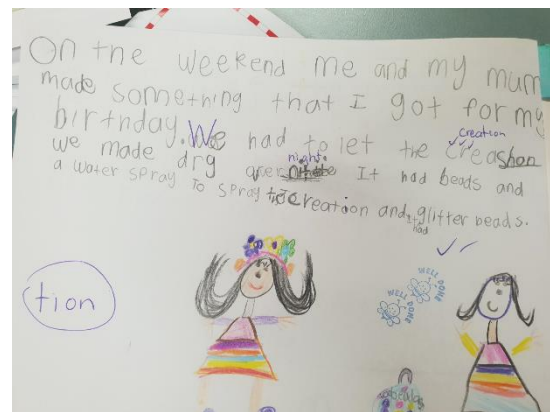 On the weekend me and my mum
made something that I got for my
birthday. We had to let the creashon
creation
we made drg over night. It had beads and
a water spray to spray the creation and glitter beads.
It had
tion
WELL DONE
WELL DONE